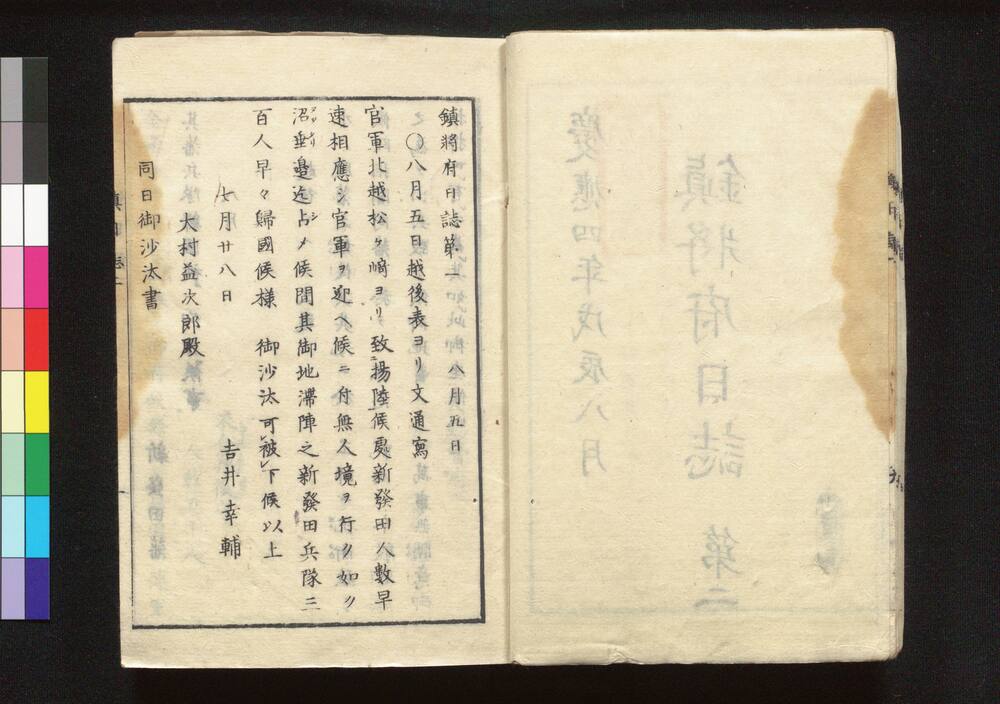 鎮將府日誌第二　八月五日
○八月五日越後表ヨリ文通寫
官軍北越松ヶ﨑ヨリ致揚陸候處新發田人數早
速相應シ官軍ヲ迎ヘ候ニ付無人境ヲ行ク如ク
沼垂邉迄占メ候間其御地滯陣之新發田兵隊三
百人早々歸國候樣　御沙汰可被下候以上
七月廿八日　吉井幸輔
大村益次郎殿
同日御沙汰書